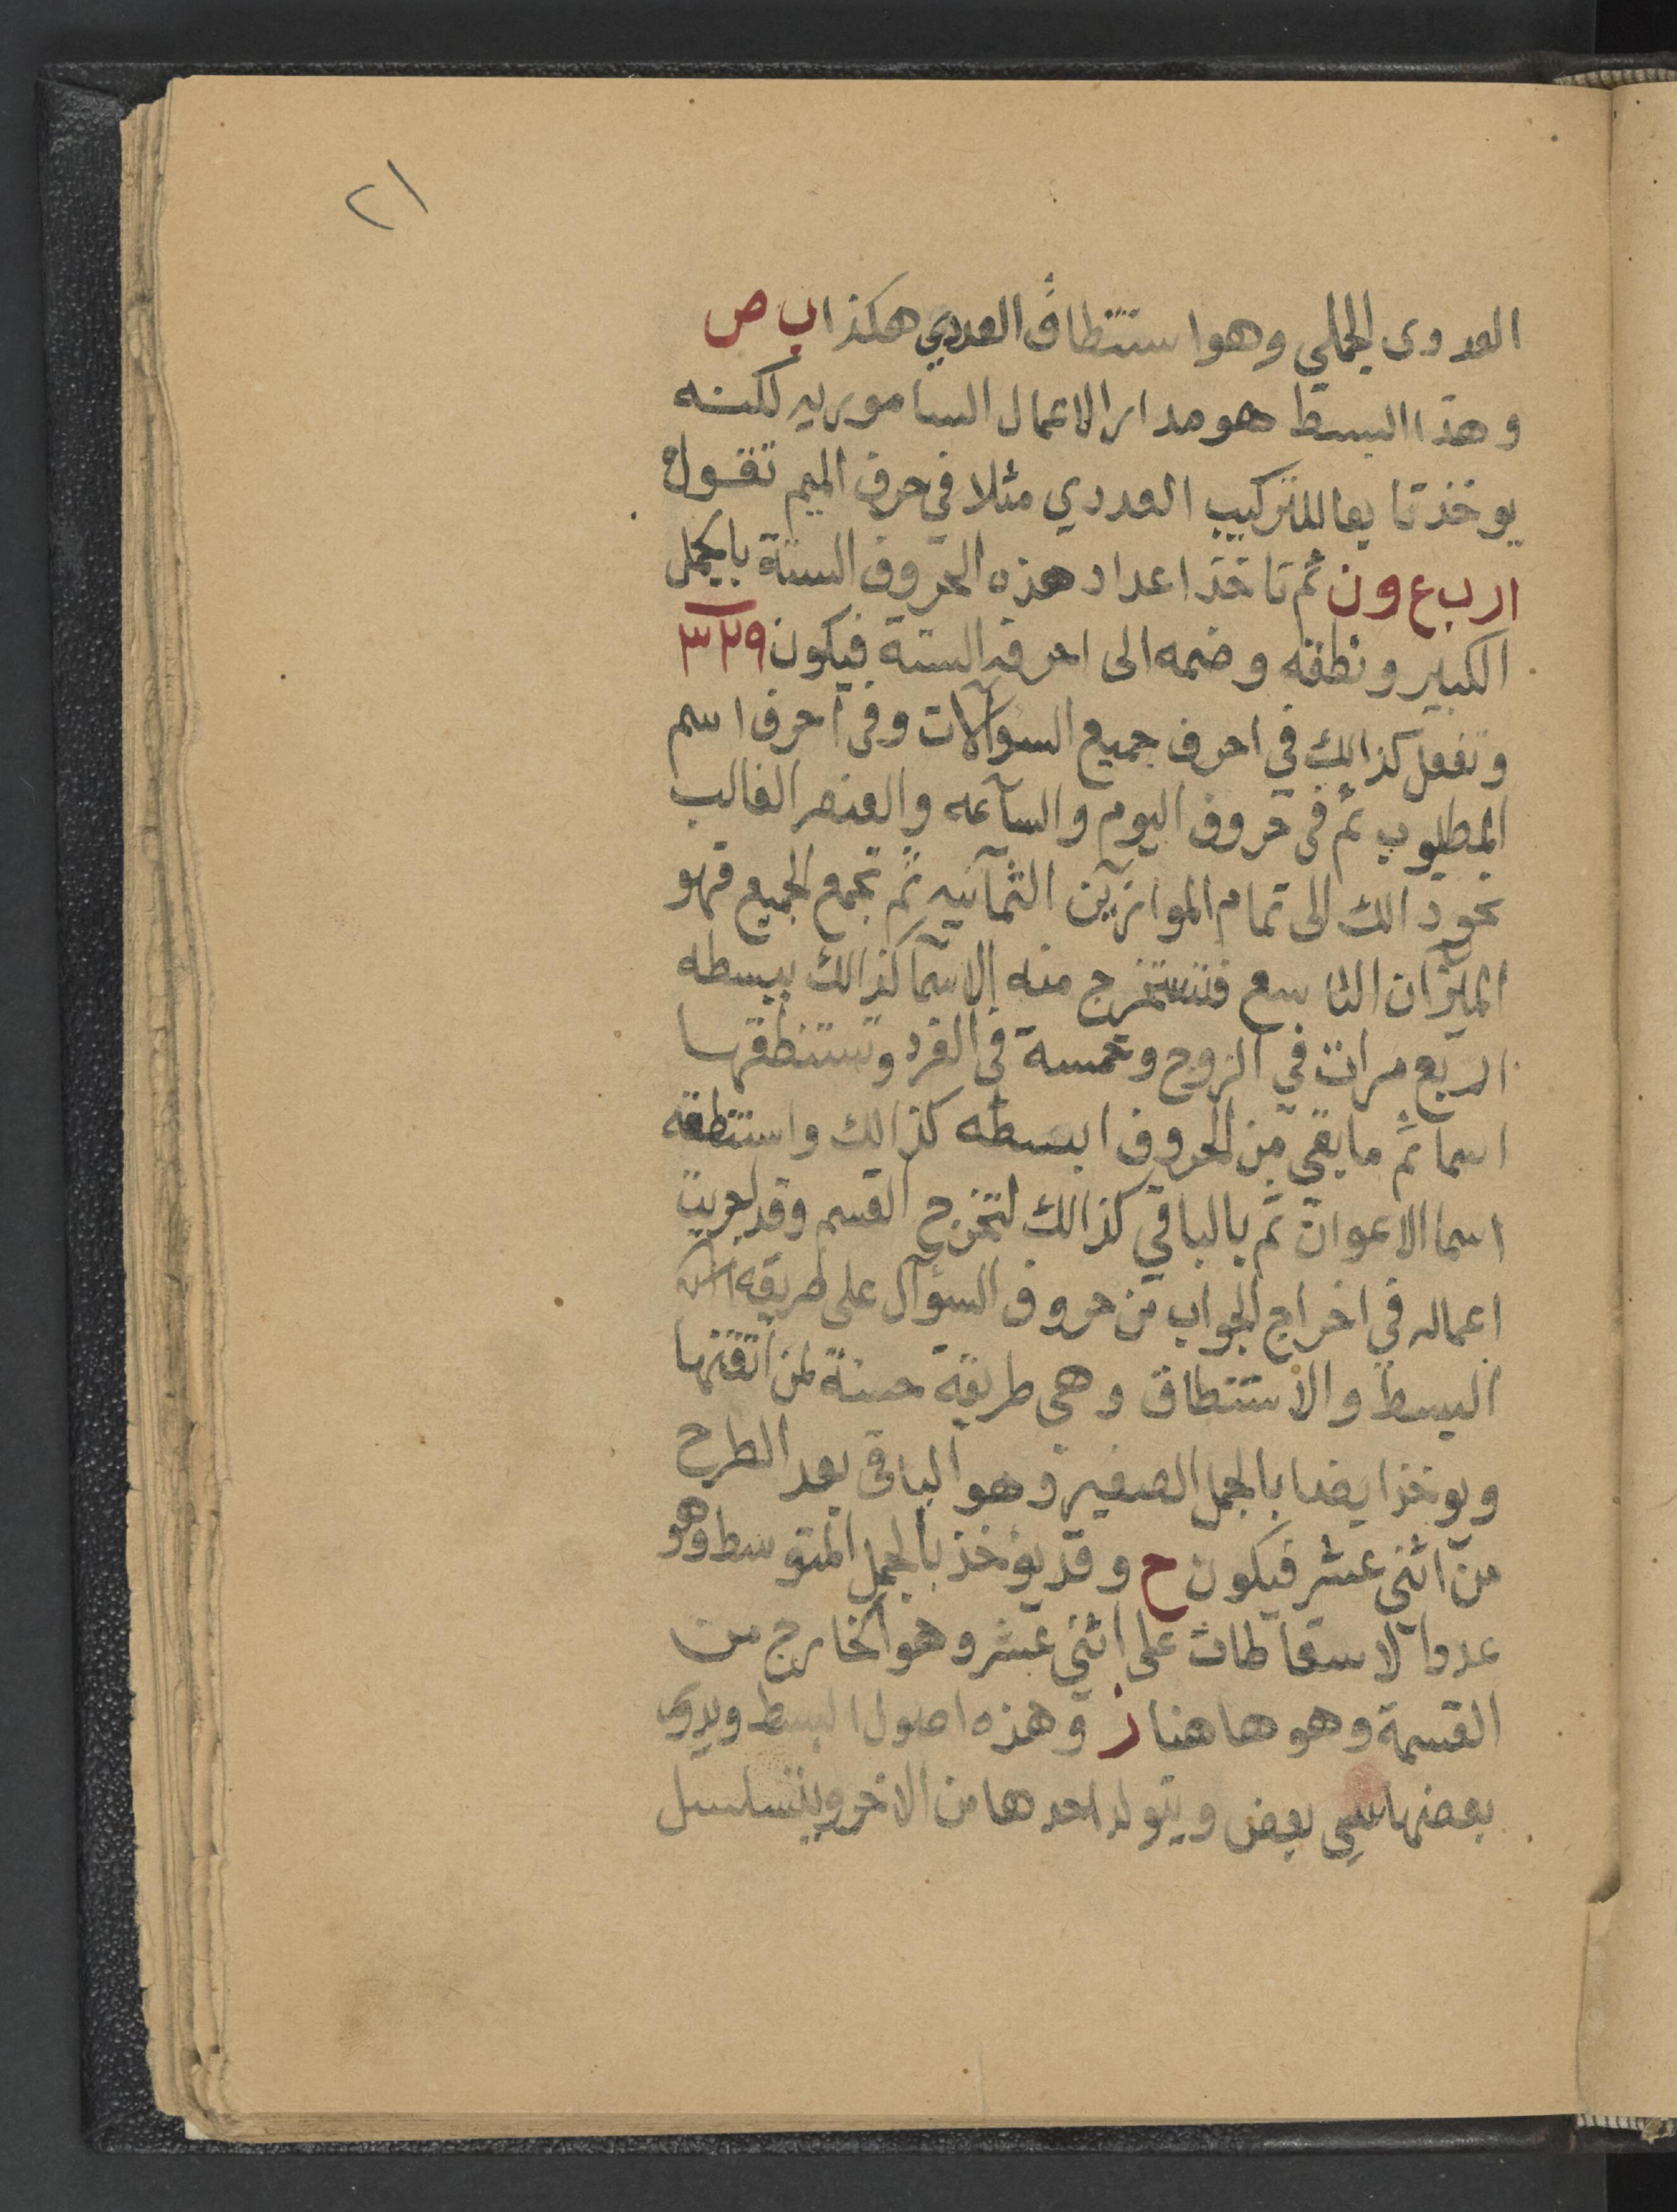 ٢١
العددى الجملي وهو استنطاق العددي هكذا ب ص
وهذا البسط هو مدار الاعمال السامورية لكنه
يوخذ تابعا للتركيب العددي مثلا في حرف الميم تقول
ا ر ب ع و ن ثم تاخذ اعداد هذه الحروف الستة بالجمل
الكبير ونطقه وضمه الى احرفه الستة فيكون ٣٢٩
وتفعل كذالك في احرف جميع السوآلات وفى احرف اسم
المطلوب ثم فى حروف اليوم والساعه والعنصر الغالب
نحو ذالك الى تمام الموازين الثمانيه ثم تجمع الجميع فهو
الميزان التاسع فتستخرج منه الاسما كذالك ببسطه
اربع مرات في الزوج وخمسة في الفرد وتستنطقها
اسما ثم ما بقي من الحروف ابسطه كذالك واستنطقه
اسما الاعوان ثم بالباقي كذالك لتخرج القسم وقد جربت
اعماله في اخراج الجواب من حروف السؤآل على طريقه
البسط والاستنطاق وهى طريقة حسنة لمن اتقنها
ويوخذ ايضا بالجمل الصغير وهو الباقى بعد الطرح
من اثنى عشر فيكون ح وقد يؤخذ بالجمل المتوسط وهو
عدوا لاسقاطات على اثنى عشر وهو الخارج من
القسمة وهو هاهنا ز وهذه اصول البسط
بعضها بعض ويتولد احدها من الاخر ويتسلسل